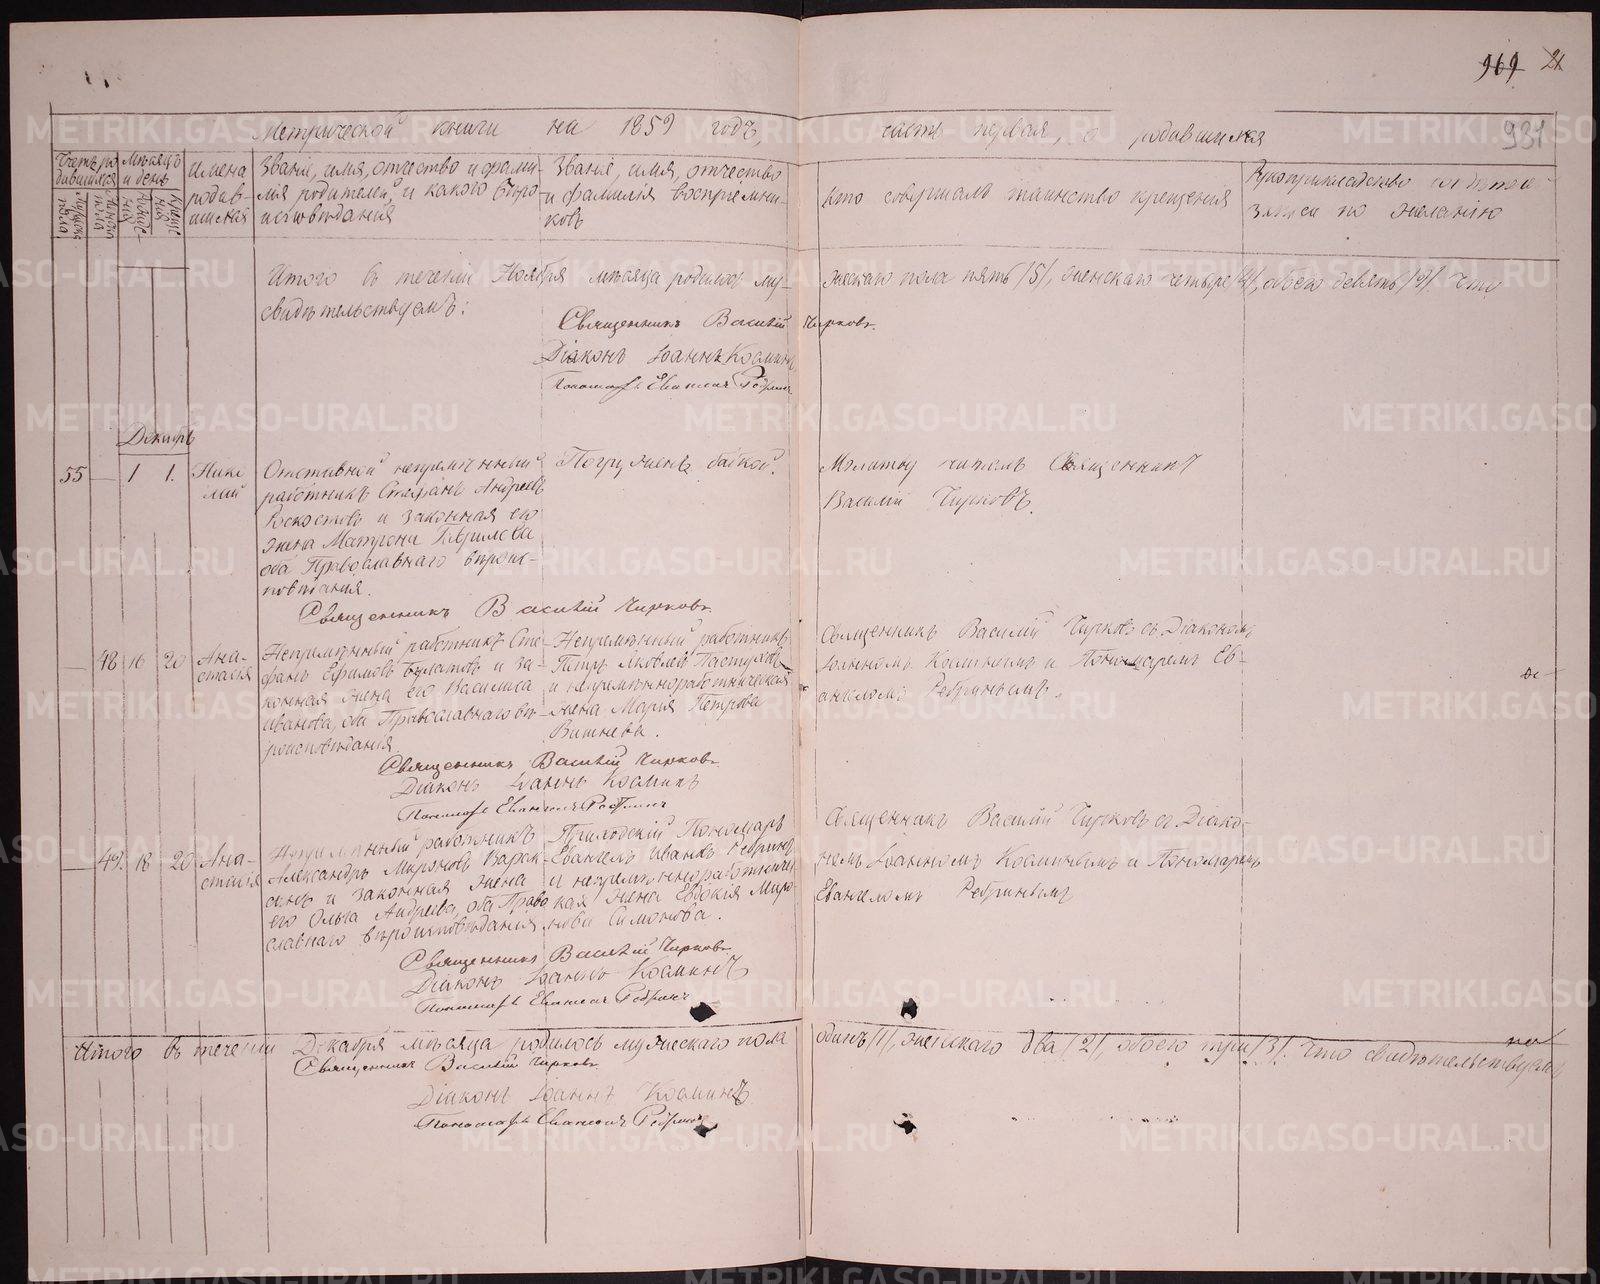 969 21
931
Метрической книги на 1859 годъ, часть первая, о родившихся
Счетъ родившихся
Мѣсяцъ и день
Имена родившихся
Званіе, имя, отчество и фамилія родителей, и какого вѣроисповѣданія
Званіе, имя, отчество и фамилія воспріемниковъ
Кто совершалъ таинство крещенія
Рукоприкладство свидѣтелей записи по желанію
Итого въ теченіи Ноября мѣсяца родилось мужескаго пола пять /5/, женскаго четыре /4/, обоего девять /9/. Что
свидѣтельствуемъ:
Священникъ Василій Чирковъ.
Діаконъ Іоаннъ Косминъ
Пономарь Евангелъ Ребринъ
Декабрь
55 — 1 1. Николай
Отставной непремѣнный
работникъ Стефанъ Андреевъ
и законная его
жена Матрона Гаврилова
оба Православнаго вѣроис-
повѣданія.
Погруженъ бабкой.
Молитву читалъ Священникъ
Василій Чирковъ.
Священникъ Василій Чирковъ.
— 48 16 20 Анастасія
Непремѣнный работникъ Сте-
фанъ Ефимовъ Булатовъ и за-
конная жена его Василиса
Иванова, оба Православнаго вѣ-
роисповѣданія.
Непремѣнный работникъ
Петръ Яковлевъ Пастуховъ
и непремѣннаработническая
жена Марія Петрова
Вишнева.
Священникъ Василій Чирковъ съ Діакономъ
Іоанномъ Косминымъ и Пономаремъ Ев-
ангеломъ Ребринымъ.
Священникъ Василій Чирковъ.
Діаконъ Іоаннъ Косминъ
Пономарь Евангелъ Ребринъ
— 49. 18 20 Анастасія
Непремѣнный работникъ
Александръ Мироновъ
и законная жена
его Ольга Андреева, оба Право-
славнаго вѣроисповѣданія
Приходскій Пономарь
Евангелъ Ивановъ Ребринъ
и непремѣннаработничес-
кая жена Евдокія Миро-
нова Симонова.
Священникъ Василій Чирковъ съ Діако-
номъ Іоанномъ Косминымъ и Пономаремъ
Евангеломъ Ребринымъ
Священникъ Василій Чирковъ
Діаконъ Іоаннъ Косминъ
Пономарь Евангелъ Ребринъ
Итого въ теченіи Декабря мѣсяца родилось мужескаго пола одинъ /1/, женскаго два /2/, обоего три /3/. Что свидѣтельствуемъ
Священникъ Василій Чирковъ
Діаконъ Іоаннъ Косминъ.
Пономарь Евангелъ Ребринъ
METRIKI.GASO-URAL.RU